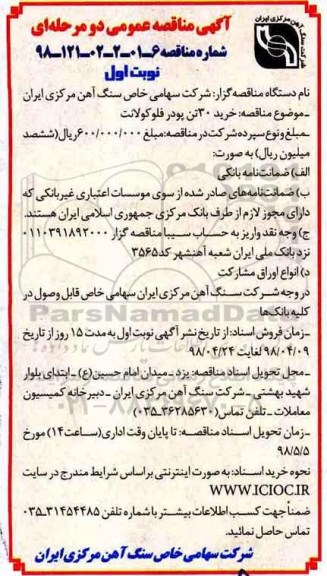 شرکت سنگ آهن مرکزی ایران
آگهی مناقصه عمومی دو مرحله‌ای
شماره مناقصه ۶-۰۱-۲-۰۲-۱۲۱-۹۸
نوبت اول
نام دستگاه مناقصه گزار: شرکت سهامی خاص سنگ آهن مرکزی ایران
-موضوع مناقصه: خرید ۳۰تن پودر فلوکولانت
-مبلغ و نوع سپرده شرکت در مناقصه: مبلغ ۶۰۰/۰۰۰/۰۰۰ریال (ششصد
میلیون ریال) به صورت:
الف) ضمانت‌نامه بانکی
ب) ضمانت‌نامه‌های صادر شده از سوی موسسات اعتباری غیربانکی که
دارای مجوز لازم از طرف بانک مرکزی جمهوری اسلامی ایران هستند.
ج) وجه نقد واریز به حساب سیبا مناقصه گزار ۰۱۱۰۳۹۱۸۹۲۰۰۰
نزد بانک ملی ایران شعبه آهنشهر کد ۳۵۶۵
د) انواع اوراق مشارکت
در وجه شرکت سنگ آهن مرکزی ایران سهامی خاص قابل وصول در
کلیه بانک‌ها
-زمان فروش اسناد: از تاریخ نشر آگهی نوبت اول به مدت ۱۵ روز از تاریخ
۹۸/۰۴/۰۹ لغایت ۹۸/۰۴/۲۴
-محل تحویل اسناد مناقصه: یزد - میدان امام حسین(ع) - ابتدای بلوار
شهید بهشتی - شرکت سنگ آهن مرکزی ایران - دبیرخانه کمیسیون
معاملات - تلفن تماس (۳۶۲۸۵۶۳۰-۰۳۵)
-زمان تحویل اسناد مناقصه: تا پایان وقت اداری (ساعت۱۴) مورخ
۹۸/۵/۵
نحوه خرید اسناد: به صورت اینترنتی براساس شرایط مندرج در سایت
WWW.ICIOC.IR
ضمناً جهت کسب اطلاعات بیشتر با شماره تلفن ۳۱۴۵۴۴۸۵-۰۳۵
تماس حاصل نمائید.
شرکت سهامی خاص سنگ آهن مرکزی ایران
ParsNamadData